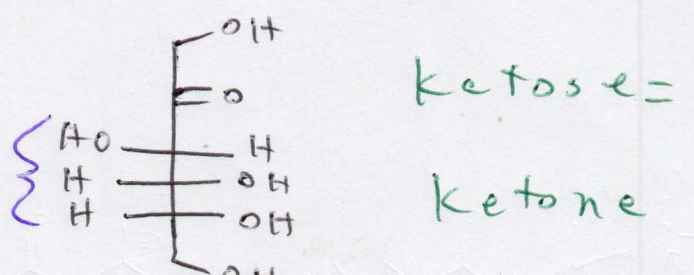 OH
O
HO H
H OH
H OH
OH
ketose =
ketone